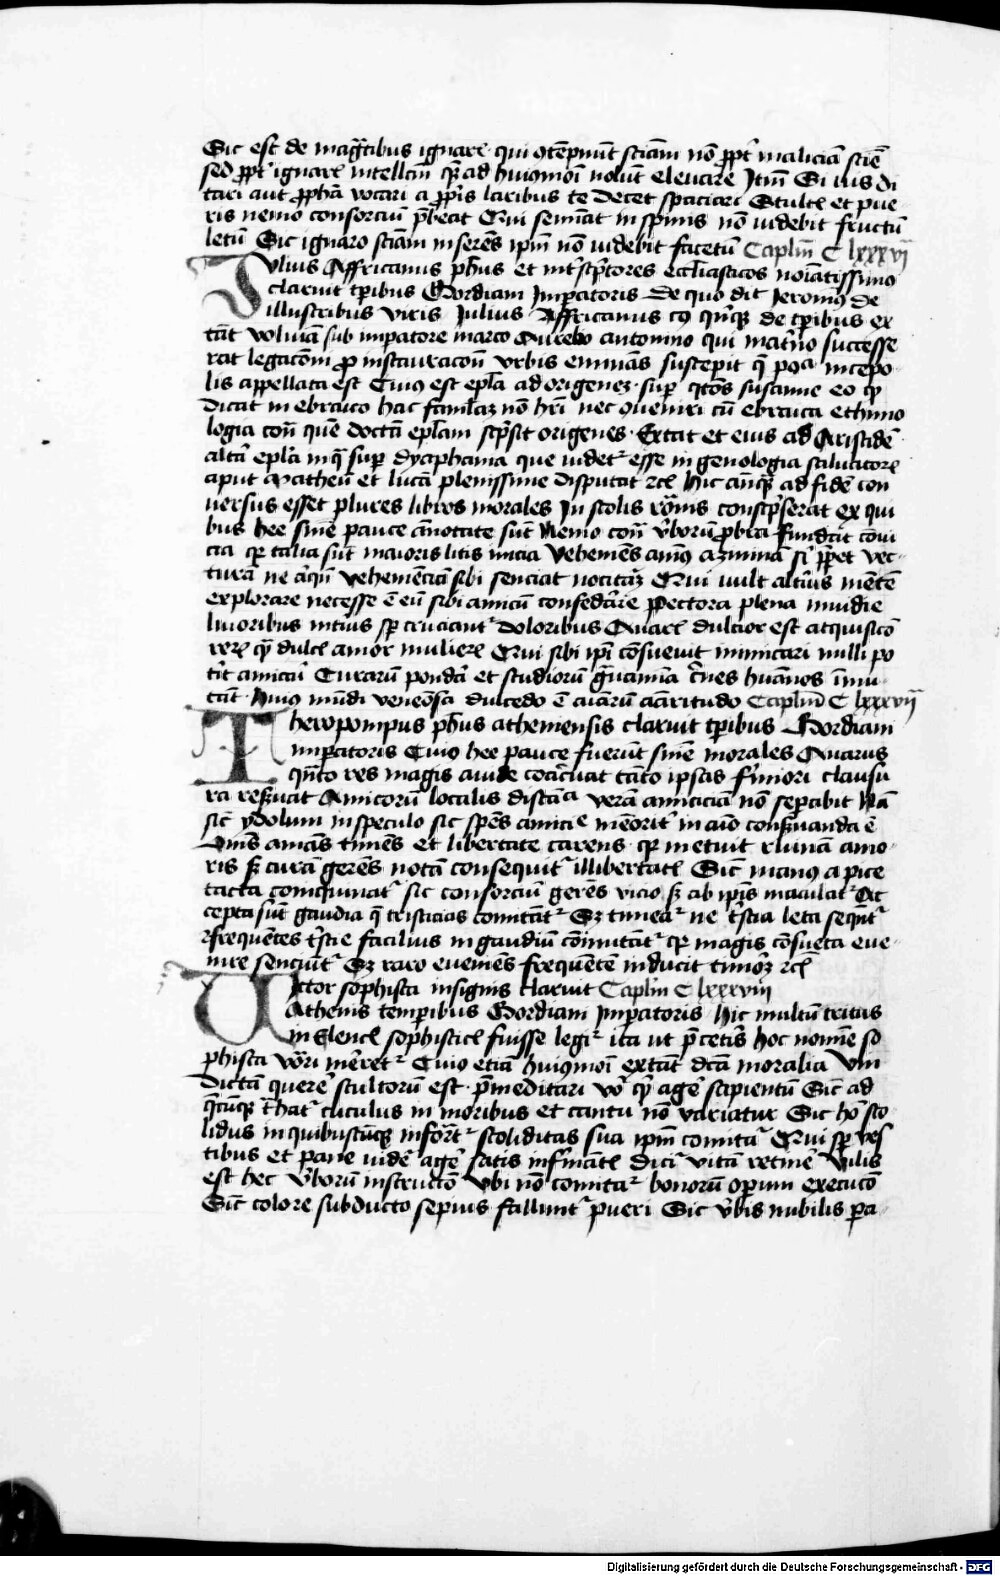 Sic est de mag̅tibus ignare qui ꝯte̅pnu̅t scia̅m no̅ ꝓpt̾ malicia̅ scie̅
sed ꝓpt̾ ignare intellcm̅ ad huiꝰmoi̅ nolu̅t eleuare Ite̅m Si uis di
tari aut ꝓpha̅ vocari a ꝓpris laribus te decet spaciari Stulte et pue
ris nemo consorciu̅ p̅beat Qui semi̅at in spinis no̅ uidebit fructu̅
letu̅ Sic ignaro scia̅m insere̅s ipm̅ no̅ uidebit facetu̅ Caplm̅ C lxxxvi
Iulius Affricanus ph̅us et int̾ sc̾ptores eccl̅iasticos noi̅atissimꝰ
claruit tp̅ribus Gordiani Imp̅atoris De quo dit Jeronimꝰ de
illustribus viris Julius Affricanus cꝰ qui̅qꝫ de tp̅ribus ex
ta̅t volui̅a sub imp̅atore marco Aurelio antonino qui mac̾no successe
rat legaco̅m ꝓ instauraco̅n urbis emmaus suscepit q̅ pꝰa nicopo
lis appellata est Cuius est epl̅a ad origenez sup̅ q̅to̅s susanne eo ꝙ
dicat in ebraico hac famil̅az no̅ hr̅i nec ꝯueniri cu̅ ebraica ethimo
logia con̅ que̅ docta̅ epl̅am sc̾psit origenes Extat et eius ad Aristide̅
alt̾a epl̅a in q̅ sup̅ dyaphania que uidet̾ esse in genologia saluatore
aput Matheu̅ et luca̅ plenissime disputat ⁊cꝭ Hic a̅nqꝫ ad fide̅ con
uersus esset plures libros morales In scolis ro̅nis consc̾pserat ex qui
bus hee sn̅ie pauce a̅notate su̅t Nemo con̅ v̾boru̅ ꝓbra fundat co̅ui
cia qꝛ talia su̅t maioris litis inicia Vehemens
tura̅ ne vehemencia̅ sibi senciat nocitaz Qui uult alt̾ius me̅te̅
explorare necesse e̅ eu̅ sibi amicu̅ confed̾are Pectora plena inuidie
liuoribus intius sp̅ cruciant̾ doloribus Quare dulcior est acquisico̅
rere qꝫ dulcꝭ amor muliere Qui sibi ipi̅ co̅sueuit inimicari nulli po
t̾it amicari Curaru̅ pond̾a et studioru̅ huma̅nos i̅mu
ta̅t Huiꝰ mu̅di venenosa dulcedo e̅ amaritudo Caplm̅ C lxxxvii
Theropompus ph̅us atheniensis claruit tp̅ribus Gordiani
imp̅atoris Cuiꝰ hee pauce fuerunt sn̅ie morales Auarus
qn̅to res magis auide coac̾uat ta̅to ipsas f̾miori clausu
ra res̾uat Amicoru̅ localis dista̅cia vera̅ amicicia̅ no̅ sep̅abit Na̅
sic̾ ydolum in speculo sic spe̅s amicie in me̅orie conseruanda e̅
Omi̅s ama̅s time̅s et libertate carens qꝛ metuit ruina̅ amo
ris sꝫ cura̅ gere̅s nota̅ consequit̾ illibertatꝭ Sic̾ manus a pice
tacta coinquinat̾ sic consorciu̅ gere̅s vicio sꝫ ab ipi̅s maculat̾ Ac
cepta su̅t gaudia q̅ tristicias comita̅t̾ Sꝫ timea̾ ne t̾stia leta sequnt̾
⁊ freque̅tes t̾stie facilius in gaudiu̅ co̅mitta̅t̾ qꝛ magis co̅sueta eue
nire senciu̅t̾ Sꝫ raro eueniens freque̅te̅ inducit timoꝛꝫ ⁊cꝭ
Victor sophista insignis claruit Caplm̅ C lxxxviii
Athenis temporibus Gordiani Imp̅atoris Hic multu̅ tritus
in Elencꝭ sophisticꝭ fuisse legi̾ ita ut p̅ cet̾is hoc nomine so
phista vo̾ri me̾ret̾ Cuiꝰ etia̅ huiꝰmoi̅ exta̅t dc̅a moralia Vin
dicta̅ querere stultoru̅ est p̅meditari vo̾ qꝫ age̾ sapientu̅ Sic̾ ad
cuculus in moribus et cantu no̅ variatur Sic ho̾ sto
lidus in quibuscu̅qꝫ infor̅t̾ stoliditas sua ipm̅ comita̾ Qui sp̅ ves
tibus et pane uide̾ age̾ satis infirmitꝭ dici̾ vita̅ retine̾ Vilis
est hec v̾boru̅ instructo̅ ubi no̅ comita̾ bonoru̅ op̅um executo̅
Sic̾ colore subducto sepius fallunt̾ pueri Sic v̾bis nubilis p̅a
Digitalisierung gefördert durch die Deutsche Forschungsgemeinschaft - DFG